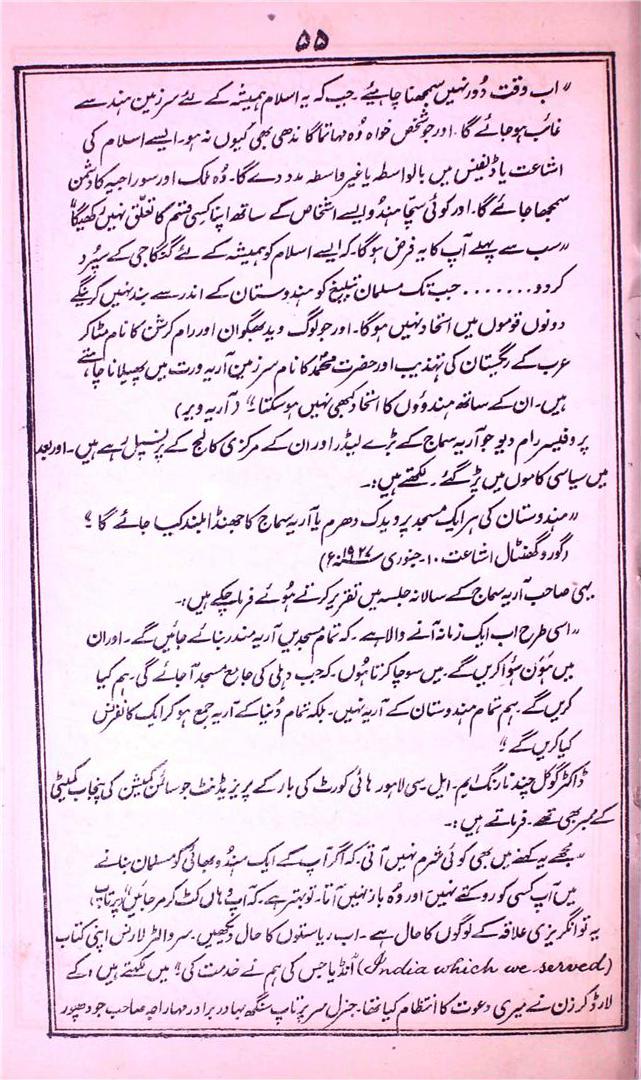 ۵۵
"اب وقت دُور نہیں سمجھنا چاہیئے۔ جب کہ یہ اسلام ہمیشہ کے لئے سرزمین ہند سے
غائب ہو جائے گا۔ اور جو شخص خواہ وُہ مہاتما گاندھی بھی کیوں نہ ہو۔ ایسے اسلام کی
اشاعت یا ڈیفنس میں بالواسطہ یا غیر واسطہ مدد دے گا۔ وُہ ملک اور سوراجیہ کا دشمن
سمجھا جائے گا۔ اور کوئی سچا ہندو ایسے اشخاص کے ساتھ اپنا کسی قسم کا تعلّق نہیں رکھیگا"
"سب سے پہلے آپ کا یہ فرض ہوگا۔ کہ ایسے اسلام کو ہمیشہ کے لئے گنگا جی کے سپُرد
کر دو........ جب تک مسلمان تبلیغ کو ہندوستان کے اندر سے بند نہیں کرینگے
دونوں قوموں میں اتحاد نہیں ہوگا۔ اور جو لوگ وید بھگوان اور رام کرشن کا نام مٹا کر
عرب کے ریگستان کی تہذیب اور حضرت محمدؐ کا نام سرزمین آریہ ورت میں پھیلانا چاہتے
ہیں۔ ان کے ساتھ ہندوؤں کا اتحاد کبھی نہیں ہو سکتا۔" (آریہ ویر)
پروفیسر رام دیو جو آریہ سماج کے بڑے لیڈر اور ان کے مرکزی کالج کے پرنسپل رہے ہیں۔ اور بعد
میں سیاسی کاموں میں پڑ گئے۔ لکھتے ہیں:۔
"ہندوستان کی ہر ایک مسجد پر ویدک دھرم یا آریہ سماج کا جھنڈا بلند کیا جائے گا"
(گورو گھنٹال اشاعت ۱۰۔ جنوری ۱۹۲۷ء)
یہی صاحب آریہ سماج کے سالانہ جلسہ میں تقریر کرتے ہوئے فرما چکے ہیں:۔
"اسی طرح اب ایک زمانہ آنے والا ہے۔ کہ تمام مسجدیں آریہ مندر بنائے جائیں گے۔ اور ان
میں ہَون ہوا کریں گے۔ میں سوچا کرتا ہوں۔ کہ جب دہلی کی جامع مسجد آ جائے گی۔ ہم کیا
کریں گے۔ ہم تمام ہندوستان کے آریہ نہیں۔ بلکہ تمام دُنیا کے آریہ جمع ہو کر ایک کانفرنس
کیا کریں گے"
ڈاکٹر گوکل چند نارنگ ایم۔ ایل۔ سی لاہور ہائی کورٹ کی بار کے پریزیڈنٹ جو سائمن کمیشن کی پنجاب کمیٹی
کے ممبر بھی تھے۔ فرماتے ہیں:۔
"مجھے یہ کہنے میں بھی کوئی شرم نہیں آتی۔ کہ اگر آپ کے ایک ہندو بھائی کو مسلمان بنانے
میں آپ کسی کو روکتے نہیں اور وُہ باز نہیں آتا۔ تو بہتر ہے۔ کہ آپ وہاں کٹ کر مر جائیں" (پرتاپ)
یہ تو انگریزی علاقہ کے لوگوں کا حال ہے۔ اب ریاستوں کا حال دیکھیں۔ سر والٹر لارنس اپنی کتاب
(India which we served) "انڈیا جس کی ہم نے خدمت کی" میں لکھتے ہیں:کے
لارڈ کرزن نے میری دعوت کا انتظام کیا تھا۔ جنرل سر پرتاپ سنگھ بہادر برادر مہاراجہ صاحب جودھپور